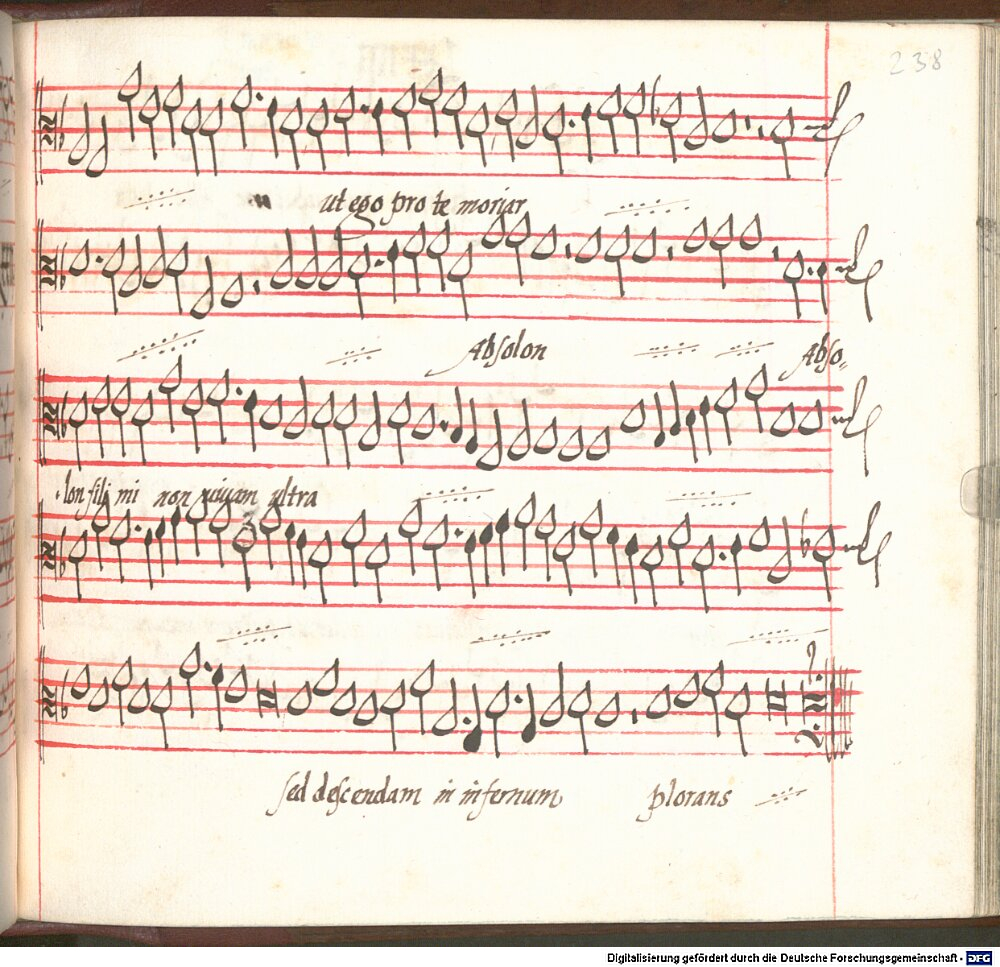 238
ut ego pro te moriar
Absolon Abso„
lon fili mi non vivam ultra
sed descendam in infernum plorans
Digitalisierung gefördert durch die Deutsche Forschungsgemeinschaft - DFG